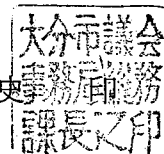 大分市議会
史 事務局総務 印
課長之印